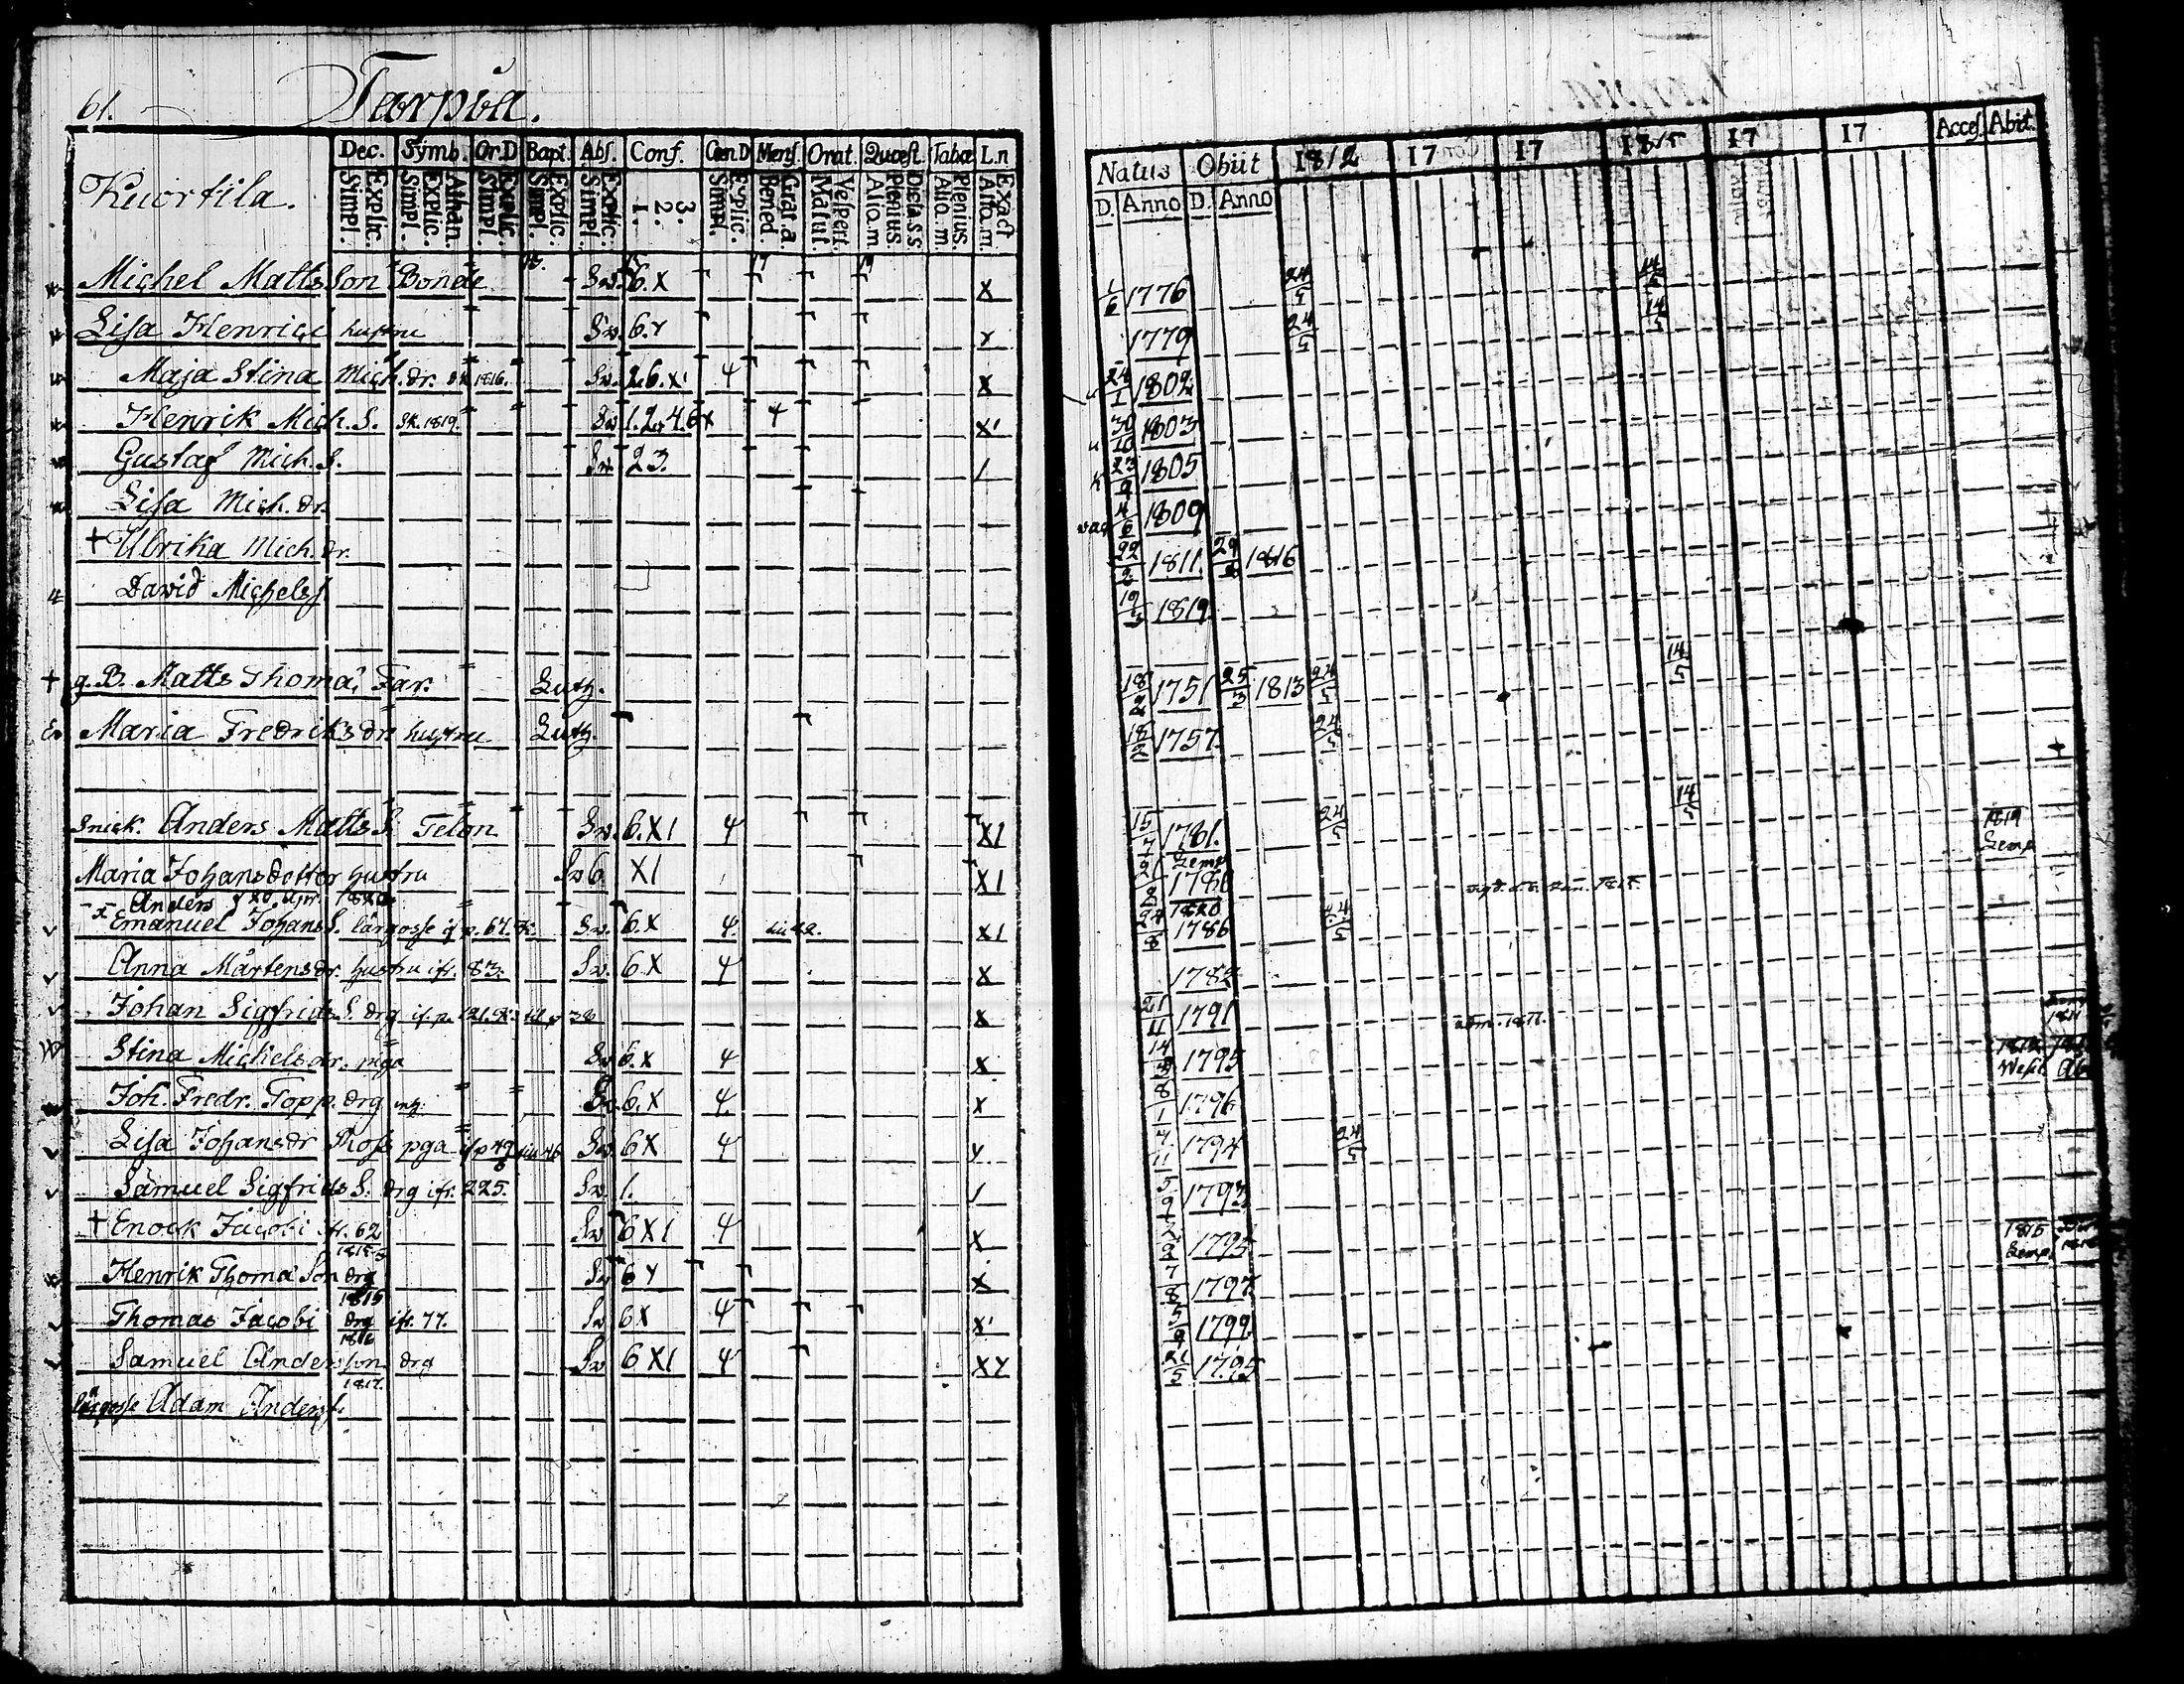 61. Tarpila.
Kuortila.
Dec. Symb. Or.D Bapt. Abs. Conf. Cœn D Mens. Orat. Quæst. Tabæ L.n
Simpl. Explic. Simpl. Explic. Athan. Simpl. Explic. Simpl. Explic. Simpl. Explic. 1. 2. 3. Simpl. Explic. Bened. Grat. a. Matut. Vespert. Alio. m. Plenius Dicta. s.s Alio. m. Plenius Alio. m. Exact
Natus Obiit 1812 17 17 1815 17 17 Acces. Abit.
D. Anno D. Anno
Michel Matts Son Bonde Sv. 6. X X 1/6 1776 24/5 14/5
Lisa Henrici hustru Sv. 6. Y Y 1779 24/5 14/5
Maja Stina Mich. dr. sk 1816. Sv. 2.6. X 4 X 24/1 1802
Henrik Mich. S. sk. 1819 Sv 1.2.4.6 X 4 X 30/10 1803
Gustaf Mich. S. Sv. 2 3. / 23/9 1805
Lisa Mich. dr. 4/6 1809
+ Ulrika Mich. dr. 22/2 1811 1816
David Michelss. 19/5 1819
+ g. B. Matts Thomæ, Far. Luth. 18/2 1751 25/3 1813 24/5 14/5
Maria Fredriks dr. hustru Luth. 18/2 1757. 24/5
Snick. Anders Matts S. Telon Sv. 6. X1 4 X1 15/7 1781. 24/5 14/5 1819 Lemp
Maria Johansdotter hustru Sv 6 X1 X1 Lemp 1780
Anders f 20. Apr. 1820 1820
Emanuel Johans S. lärgosse if p. 67. Sv. 6 X 4. X1 24/8 1786 24/5
Anna Mårtensdr. hustru ifr. 83. Sv. 6 X 4 X 1782
Johan Sigfrids S. drg if. p. 121. X 21/11 1791
Stina Michelsdr. piga Sv 6. X 4 X 14 1795
Joh. Fredr. Topp. drg 6. X 4 X 8/1 1796
Lisa Johansdr Ross pga if p 49 Sv. 6 X 4 Y 7/11 1794 24/5
Samuel Sigfrids S. drg ifr. 225. Sv. 1. / 5/9 1793
+ Enock Jacobi fr. 62 Sv 6 X1 4 X 1795 1815 Lemp.
1815
Henrik Thomæ Son drg Sv 6 Y X 7/8 1797
1815
Thomas Jacobi drg ifr. 77. Sv 6 X 4 X 5/9 1799
1816
Samuel Andersson drg Sv 6 X1 4 X Y 21/5 1795
1817.
lärgosse Adam Anderss.